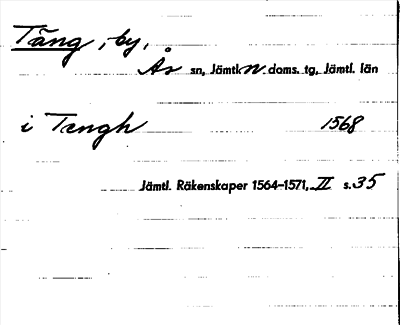 Täng, by,
Ås sn, Jämtl. n. doms. tg, Jämtl. län
i Tængh 1568
Jämtl. Räkenskaper 1564-1571, II s. 35